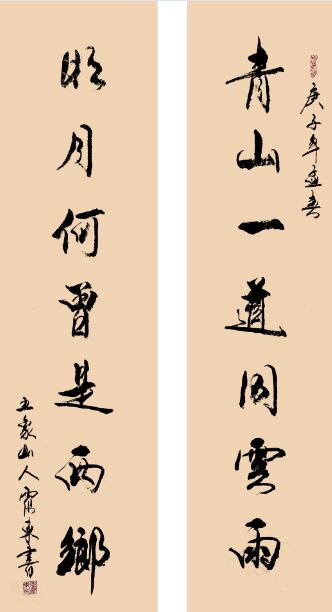 庚子年孟春
青山一道同雲雨
明月何曾是兩鄉
五象山人東書